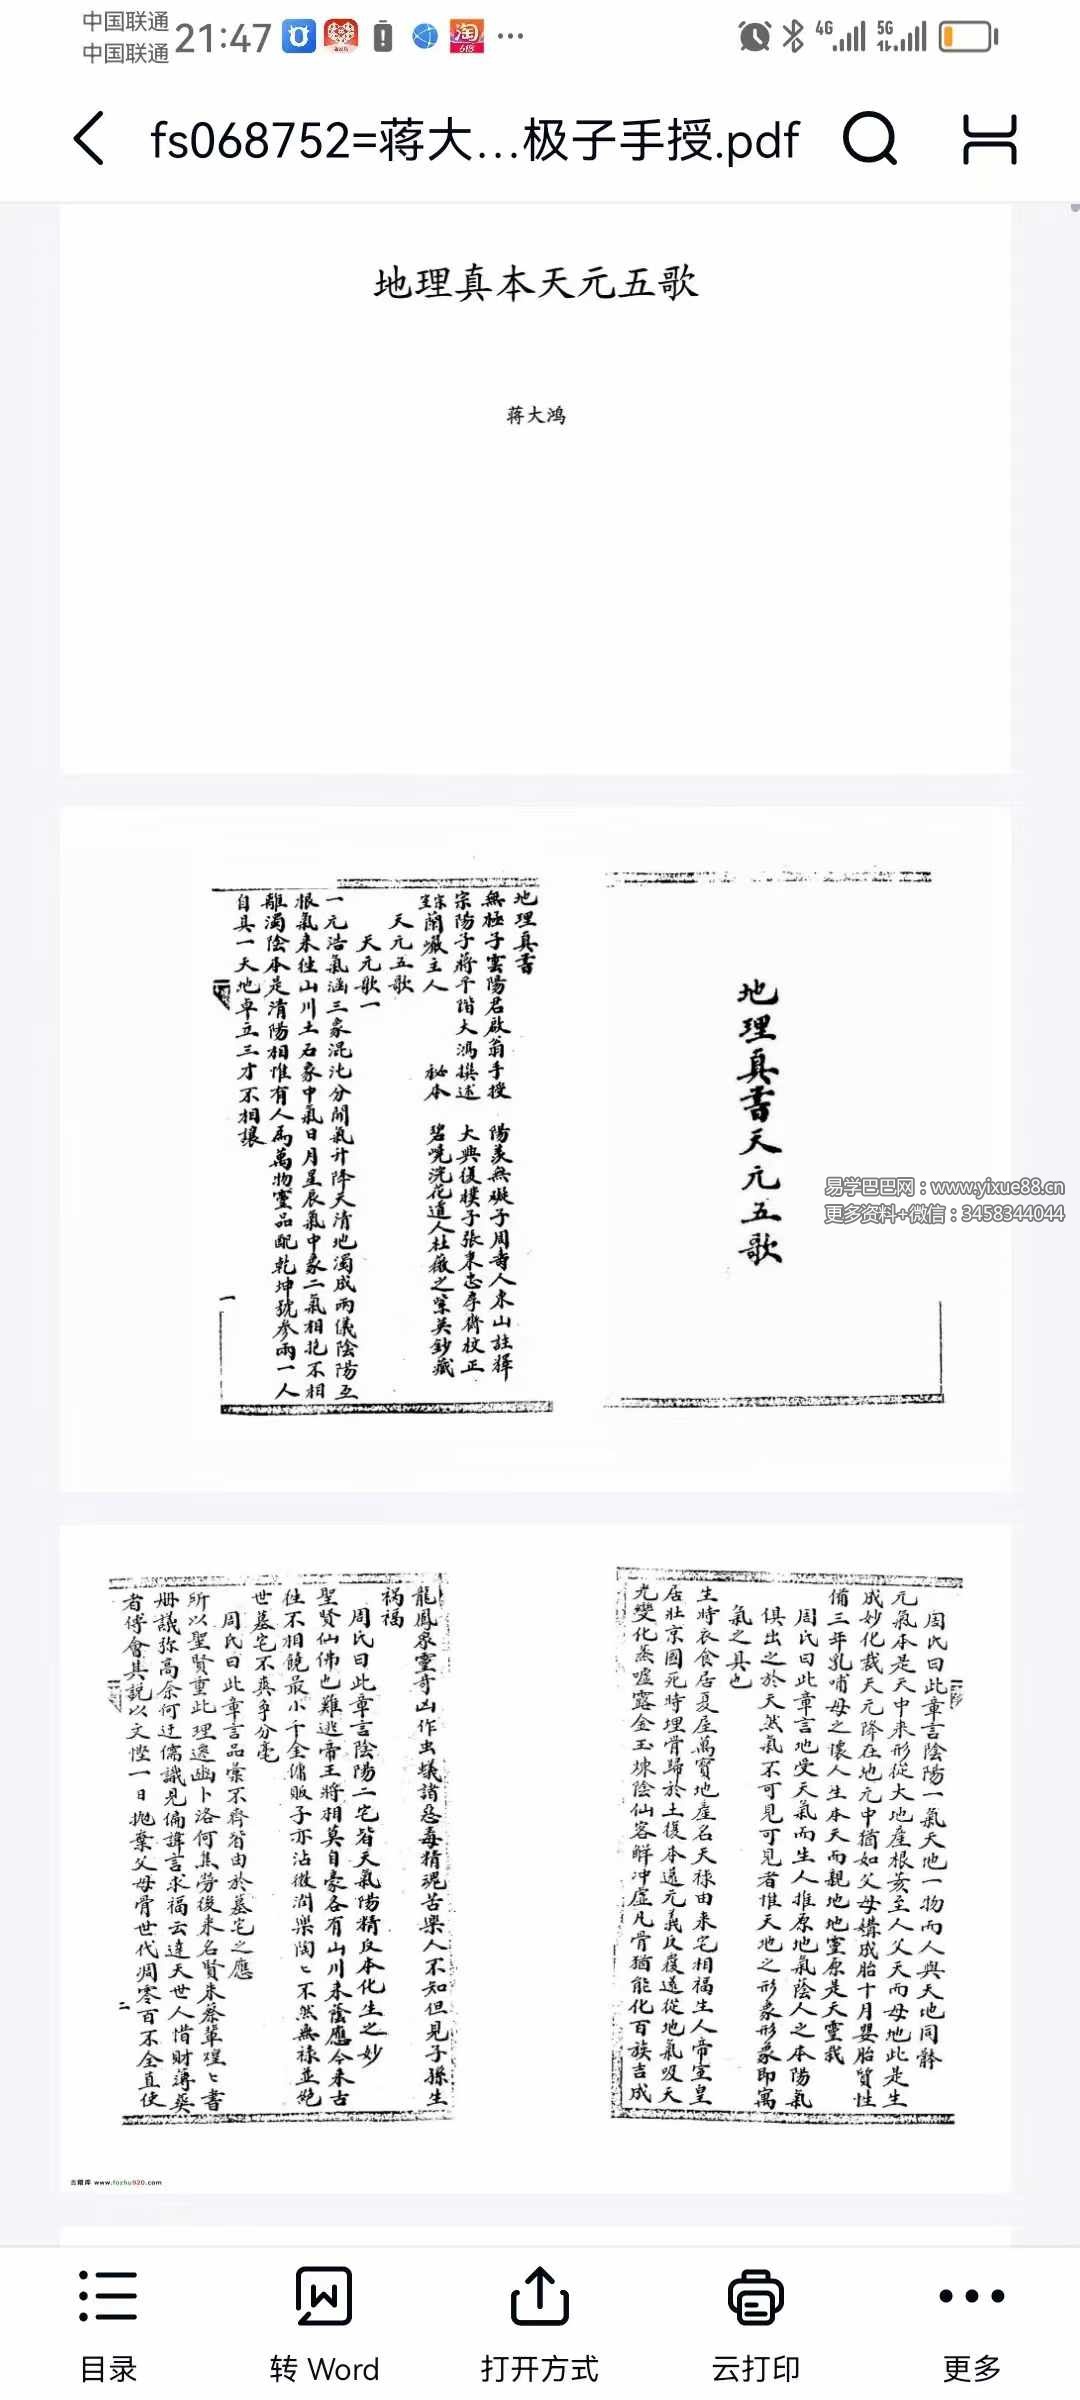 中国联通
中国联通
21:47
4G
5G
fs068752=蒋大...极子手授.pdf
地理真本天元五歌
蒋大鸿
地理真書天元五歌
地理真書
無極子雲陽君啟翁手授 陽羨無礙子周書人東山註釋
宗陽子蔣平階大鴻撰述 大興復樸子張東志存齋校正
蘭巖主人 秘本 碧喨浣花道人杜薇之紫英鈔藏
天元五歌
天元歌一
一元浩氣涵三象混沌分開氣升降天清地濁成兩儀陰陽互
根氣來往山川土石象中氣日月星辰氣中象二氣相抱不相
離濁陰本是清陽相惟有人為萬物靈品配乾坤號參兩一人
自具一天地卓立三才不相讓
一
易学巴巴网：www.yixue88.cn
更多资料+微信：3458344044
周氏曰此章言陰陽一氣天地一物而人與天地同體
元氣本是天中來形從大地產根荄至人父天而母地此是生
成妙化裁天元降在地元中猶如父母媾成胎十月嬰胎質性
備三年乳哺母之懷人生本天而親地地靈原是天靈我
周氏曰此章言地受天氣而生人推原地氣蔭人之本陽氣
俱出之於天然氣不可見可見者惟天地之形象形象即寓
氣之具也
生時衣食居夏屋萬寶地產名天祿由來宅相福生人帝室皇
居壯京國死時埋骨歸於土復本還元義反覆遂從地氣吸天
光變化蒸噓露金玉煉陰仙客解沖虛凡骨猶能化百族吉成
龍鳳象靈奇凶作虫蟻諸惡毒猜魂苦樂人不知但見子孫生
禍福
周氏曰此章言陰陽二宅皆天氣陽精反本化生之妙
聖賢仙佛也難逃帝王將相莫自豪各有山川來蔭應今來古
往不相饒最小千金傭販子亦沾微潤樂陶匕不然無祿並絕
世墓宅不爽爭分毫
周氏曰此章言品彙不齊皆由於墓宅之應
所以聖賢重此理遷豳卜洛何焦勞後來名賢朱蔡輩煌匕書
冊議弥高奈何迂儒識見偏諱言求福云違天世人惜財薄葬
者傅會其說以文慳一日抛棄父母骨世代凋零百不全直使
二
古籍库 www.fozhu920.com
目录
转 Word
打开方式
云打印
更多